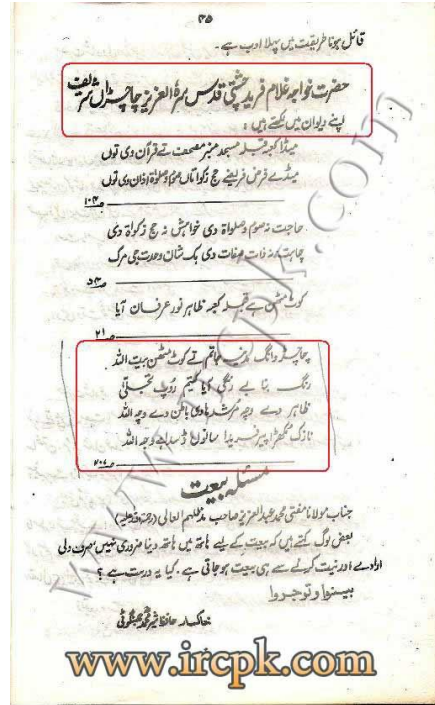 ۳۵
قائل ہونا طریقت میں پہلا ادب ہے۔
حضرت خواجہ غلام فرید چشتی قدس سرہٗ العزیز چاچڑاں شریف
اپنے دیوان میں لکھتے ہیں:
میڈا کعبہ قبلہ مسجد منبر مصحف تے قرآن وی توں
میڈے فرض فریضے حج زکواتاں صوم صلوٰۃ اذان وی توں
صـ۱۰۴
حاجت نہ صوم وصلواۃ دی خواہش نہ حج زکواۃ دی
چاہت نہ ذات صفات دی بک شان وحدت جی مرگ
صـ۵۴
کوٹ مٹھن ہے قبلہ کعبہ ظاہر نور عرفان آیا
صـ۲۱
چاچڑ وانگ مدینہ جاتم تے کوٹ مٹھن بیت اللہ
رنگ بنا بے رنگی آیا کیتم روپ تجلی
ظاہر دے وچہ مرشد ہادی باطن دے وچہ اللہ
نازک مکھڑا پیر فریدا سانوں ڈسدا ہے وجہ اللہ
صـ۲۰۷
مسئلہ بیعت
جناب مولانا مفتی محمد عبدالعزیز صاحب مدظلہم العالی (رحمۃ اللہ علیہ)
بعض لوگ کہتے ہیں کہ بیعت کے لیے ہاتھ میں ہاتھ دینا ضروری نہیں صرف دلی
ارادے اور نیت کر لے سے ہی بیعت ہو جاتی ہے۔ کیا یہ درست ہے؟
بینوا و توجروا
خاکسار حافظ محمد
www.ircpk.com
www.ircpk.com